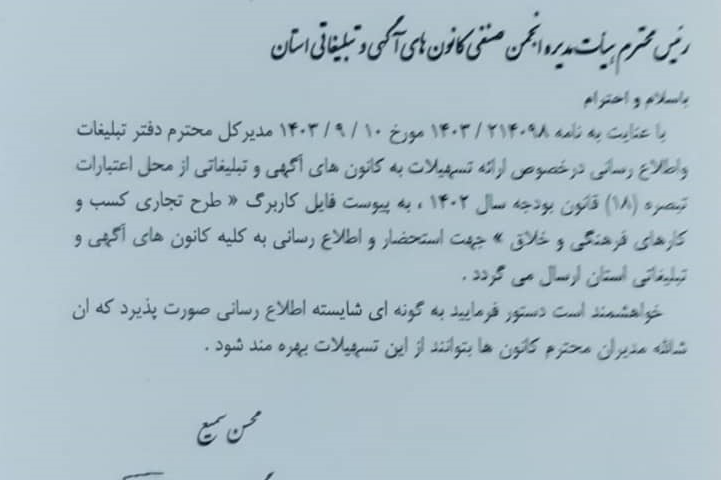 رئیس محترم هیأت مدیره انجمن صنفی کانون های آگهی و تبلیغاتی استان
باسلام و احترام
با عنایت به نامه ۲۱۴۰۹۸ / ۱۴۰۳ مورخ ۱۰ / ۹ / ۱۴۰۳ مدیرکل محترم دفتر تبلیغات
واطلاع رسانی درخصوص ارائه تسهیلات به کانون های آگهی و تبلیغاتی از محل اعتبارات
تبصره (۱۸) قانون بودجه سال ۱۴۰۲ ، به پیوست فایل کاربرگ « طرح تجاری کسب و
کارهای فرهنگی و خلاق » جهت استحضار و اطلاع رسانی به کلیه کانون های آگهی و
تبلیغاتی استان ارسال می گردد .
خواهشمند است دستور فرمایید به گونه ای شایسته اطلاع رسانی صورت پذیرد که ان
شالله مدیران محترم کانون ها بتوانند از این تسهیلات بهره مند شود .
محسن سمیع